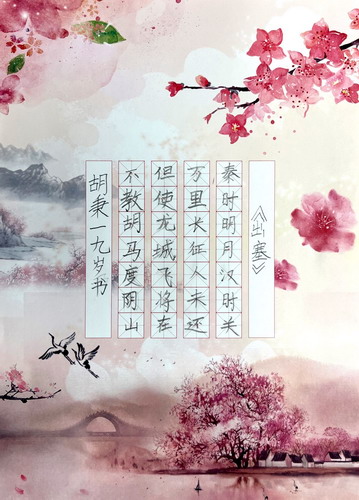 《出塞》
秦时明月汉时关
万里长征人未还
但使龙城飞将在
不教胡马度阴山
胡秉一九岁书